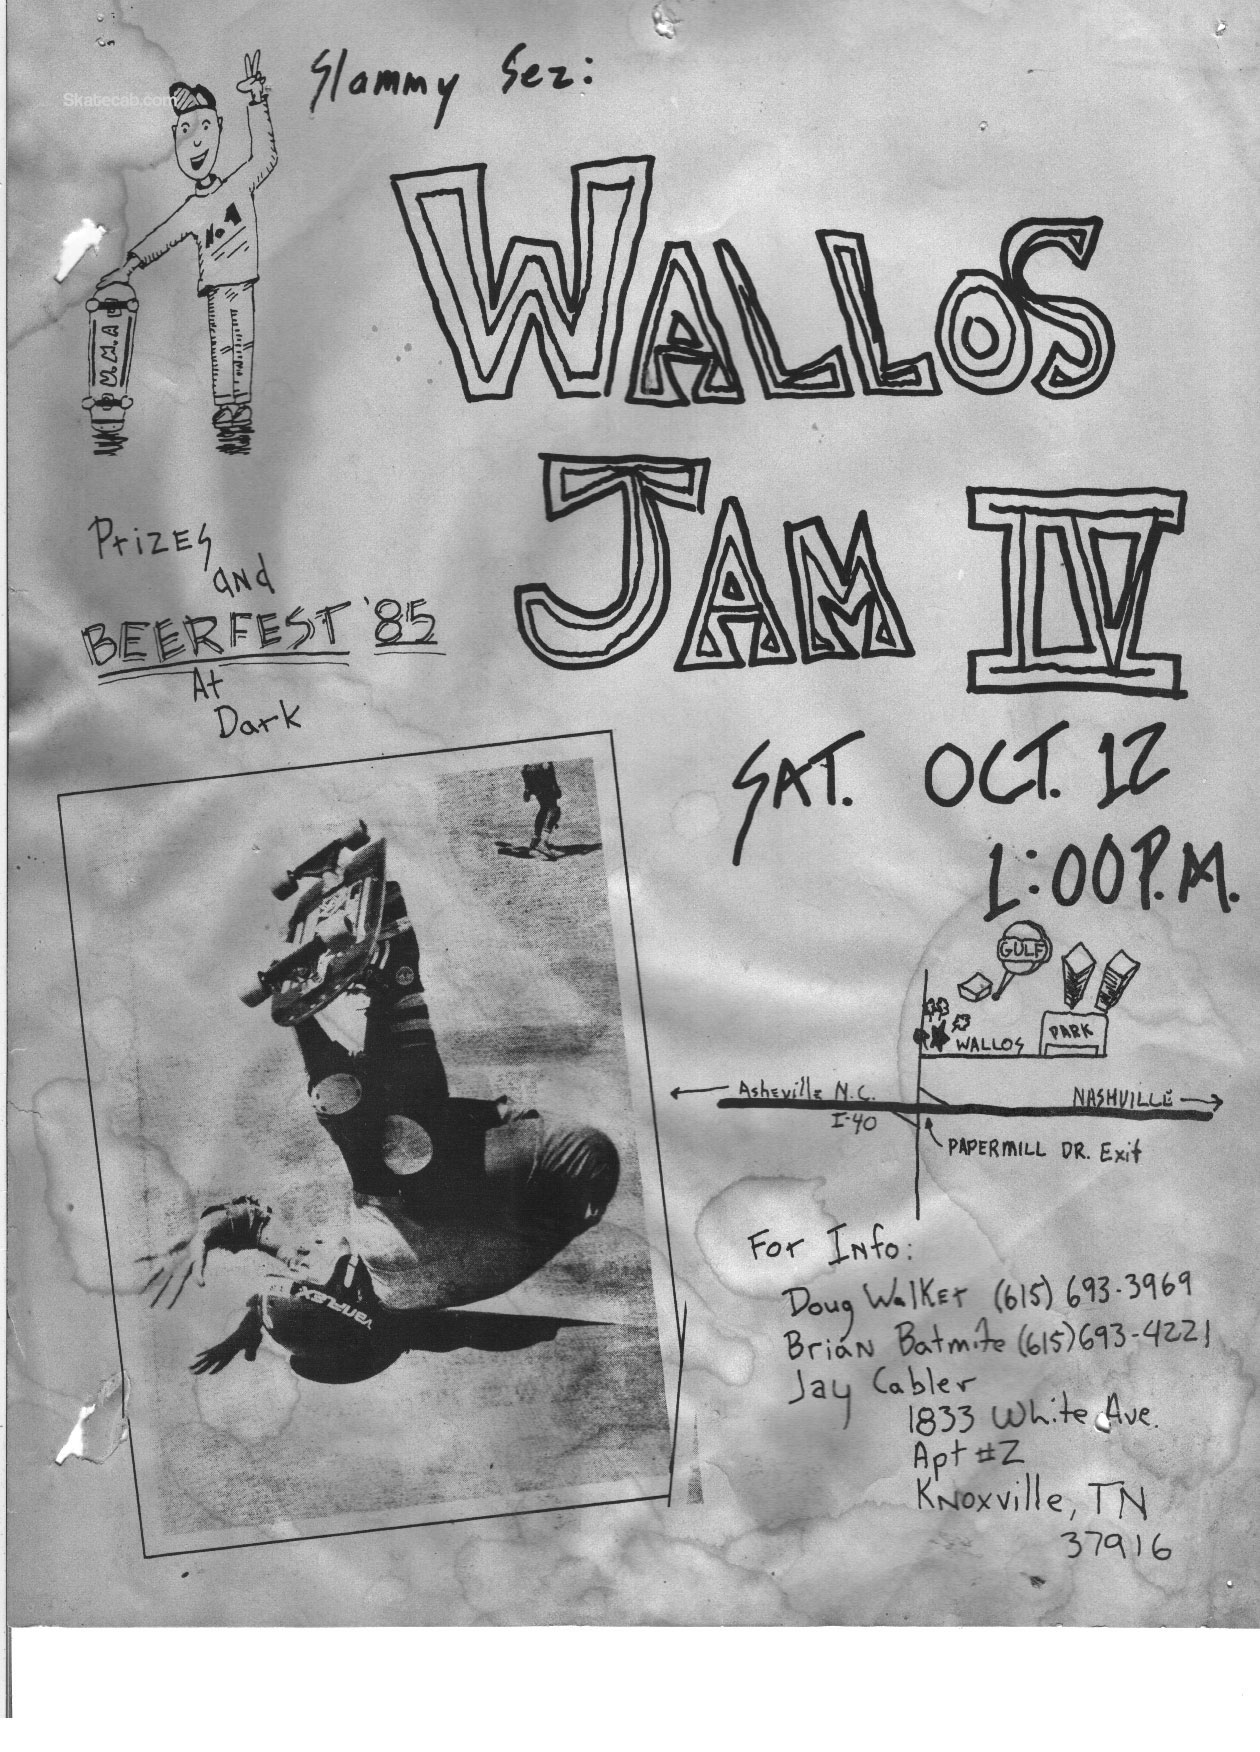 Skatecab.com
Slammy Sez:
No 1
WALLOS
JAM IV
PrizES
aNd
BEERFEST '85
At
Dark
SAT. OCT. 12
1:00 P.M.
GULF
PARK
WALLOS
Asheville N.C.
NASHVILLE
I-40
PAPERMILL DR. Exit
VARIFLEX
For INfo:
Doug WalKEr (615) 693-3969
BriaN Batmite (615) 693-4221
Jay Cabler
1833 White Ave.
Apt #2
KNoxville, TN
37916